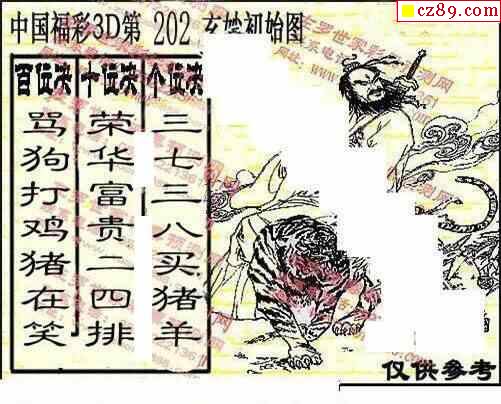 cz89.com
中国福彩3D第 202 玄妙初始图
百位决 十位决 个位决
骂狗打鸡猪在笑
荣华富贵二四排
三七三八买猪羊
仅供参考